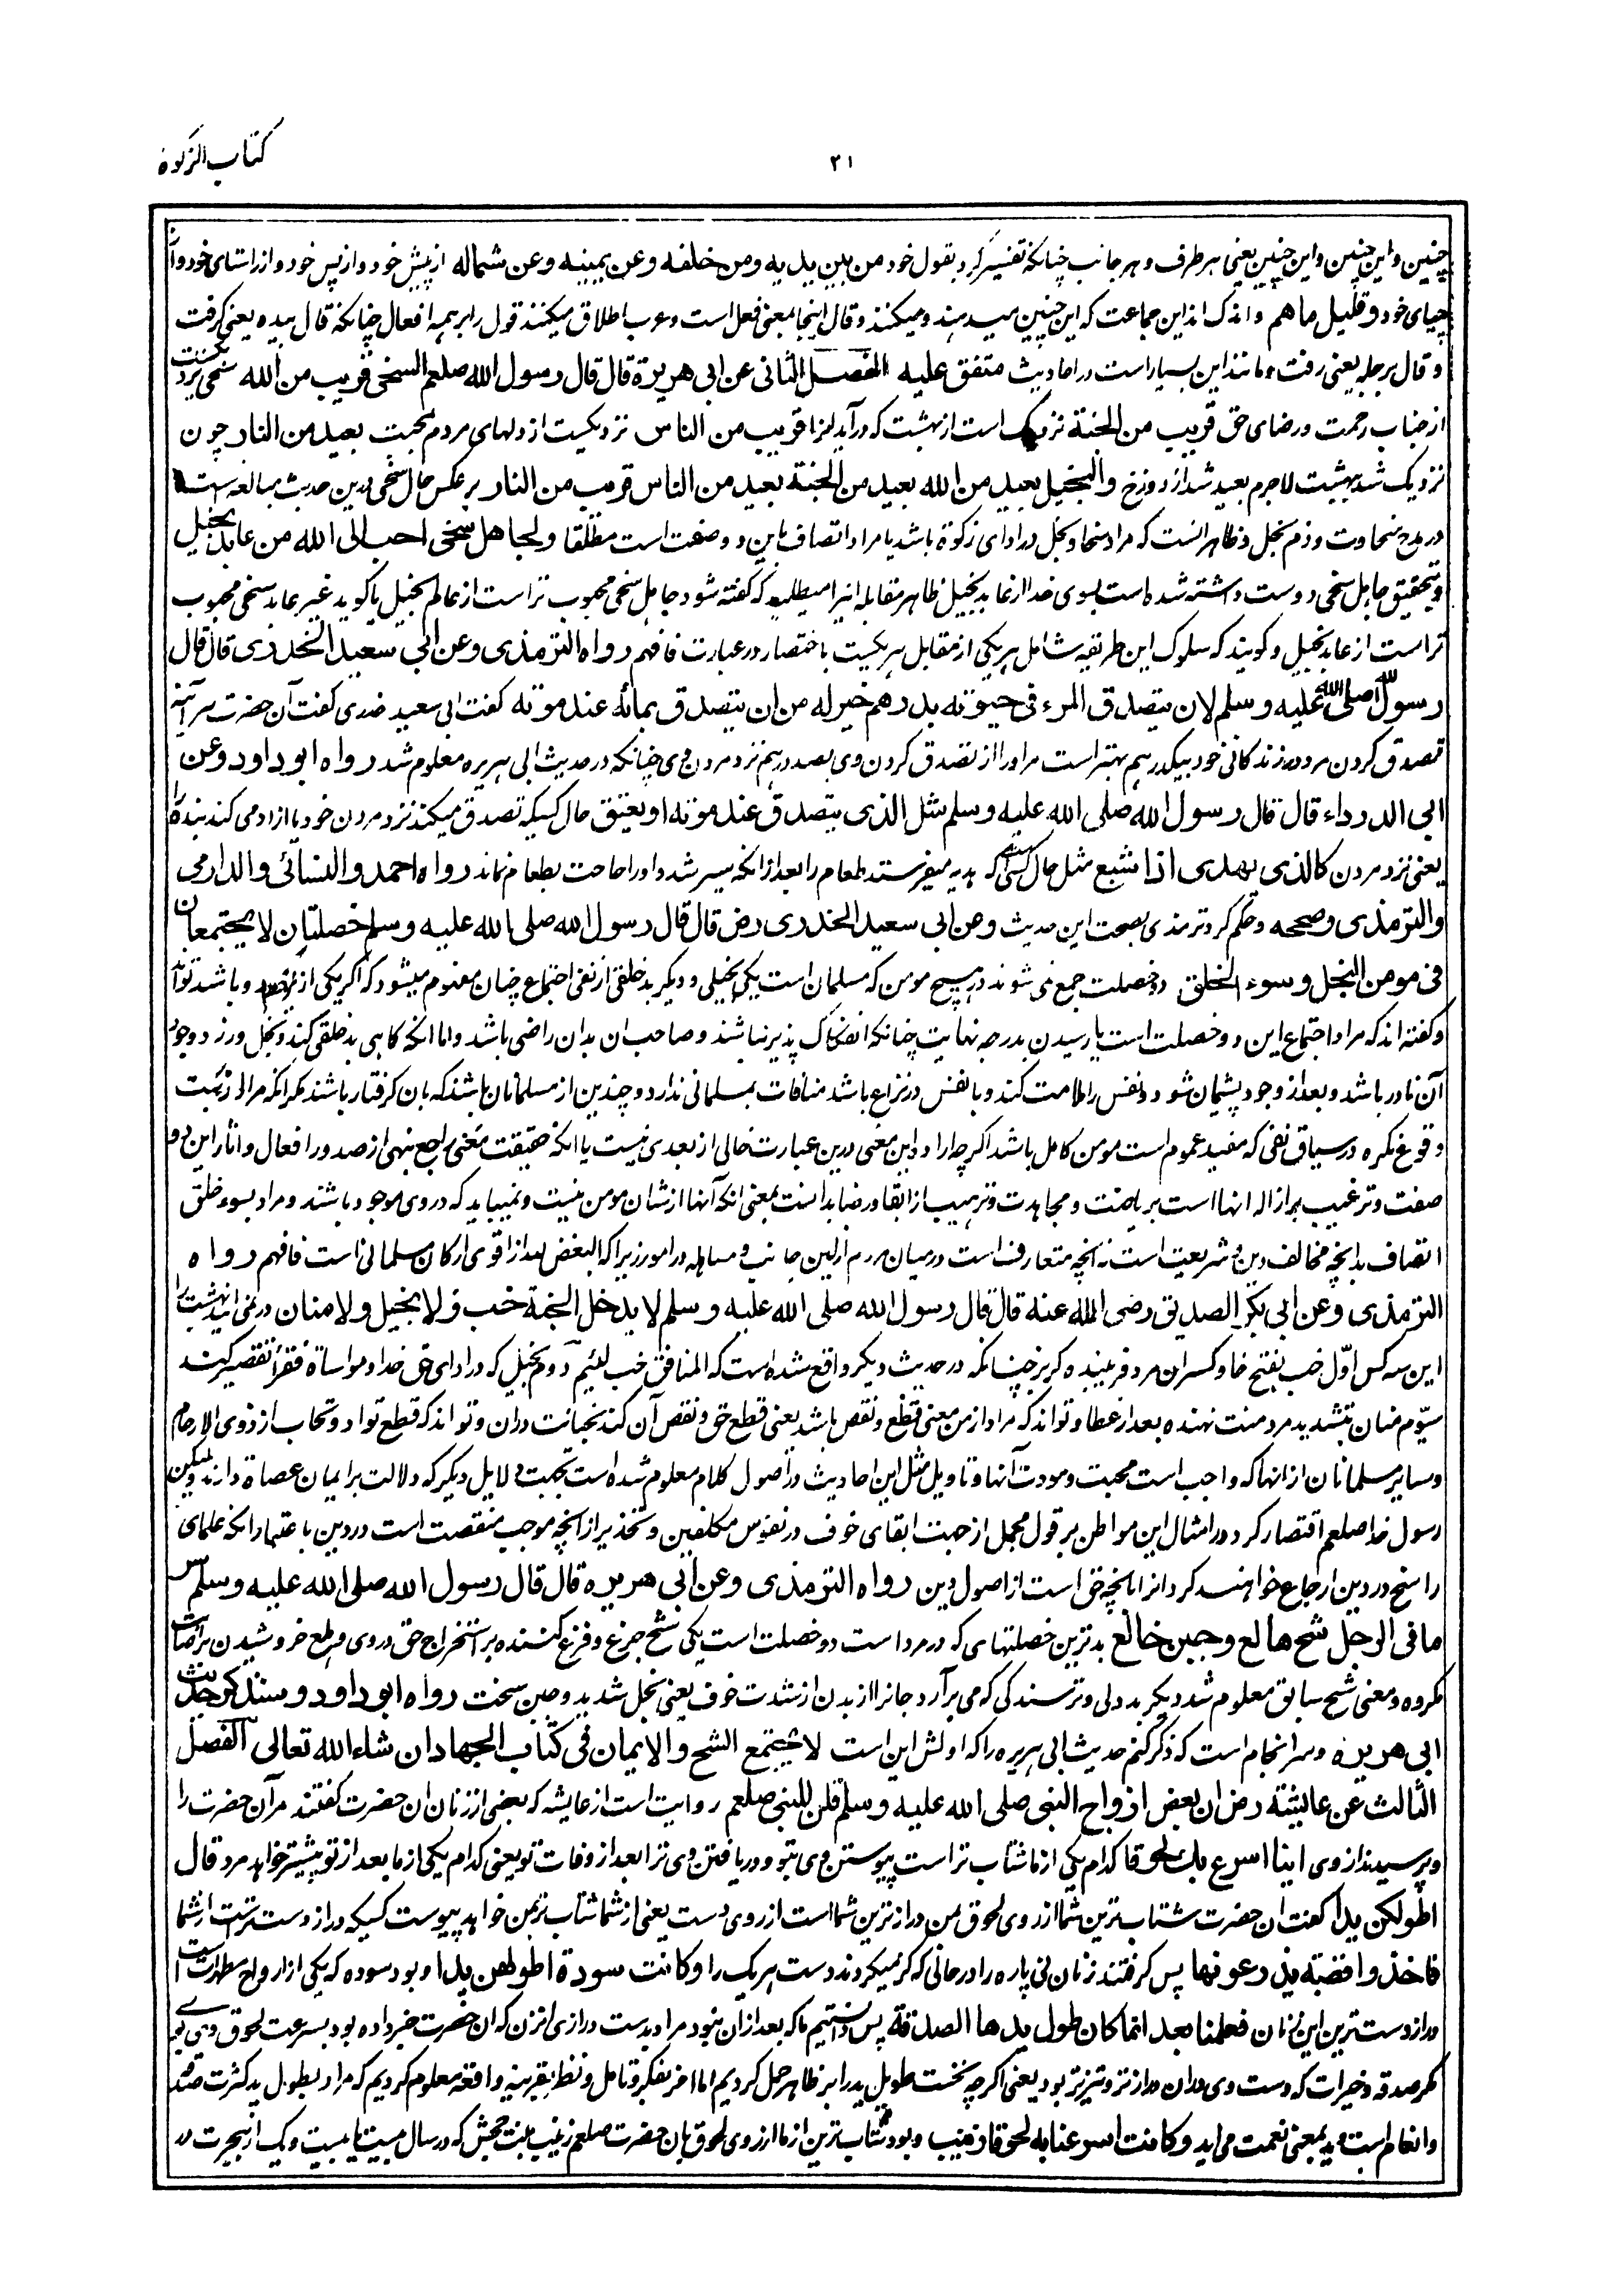 كتاب الزكوة
٢١
چنین و این چنین و این چنین یعنی هر طرف و هر جانب چنانکه تفسیر کرد بقول خود من بین یدیه ومن خلفه وعن یمینه وعن شماله از پیش خود و از پس خود و از راستای خود و از
چپای خود وقلیل ما هم و اندک اند این جماعت که این چنین میدهند و میکنند و قال اینجا بمعنی فعل است و عرب اطلاق میکنند قول را بر همه افعال چنانکه قال بیده یعنی گرفت
و قال برجله یعنی رفت و مانند این بسیار است در احادیث متفق علیه الفصل الثانی عن ابی هریرة قال قال رسول الله صلعم السخی قریب من الله سخی نزدیکست
از جناب رحمت و رضای حق قریب من الجنة نزدیک است از بهشت که درآید انرا قریب من الناس نزدیکست از دلهای مردم بمحبت بعید من النار چون
نزدیک شد به بهشت لاجرم بعید شد از دوزخ والبخیل بعید من الله بعید من الجنة بعید من الناس قریب من النار بر عکس حال سخی و درین حدیث مبالغه است
در مدح سخاوت و ذم بخل و ظاهر آنست که مراد سخا و بخل در ادای زکوة باشد یا مراد اتصاف باین دو صفت است مطلقا ولجاهل سخی احب الی الله من عابد بخیل
و بتحقیق جاهل سخی دوست داشته شده است بسوی خدا از عابد بخیل ظاهر مقابله انرا میطلبد که گفته شود جاهل سخی محبوب تر است از عالم بخیل یا گوید غیر عابد سخی محبوب
تر است از عابد بخیل و گویند که سلوک این طریقه شامل هر یکی از مقابل هر یکیست با اختصار در عبارت فافهم رواه الترمذی وعن ابی سعید الخدری قال قال
رسول الله صلی الله علیه وسلم لان یتصدق المرء فی حیوته بدرهم خیر له من ان یتصدق بمائة عند موته گفت ابی سعید خدری گفت آن حضرت هر آئنه
تصدق کردن مرد در زندگانی خود بیکدرهم بهتر است مر او را از تصدق کردن وی بصد درهم نزد مردن وی چنانکه در حدیث ابی هریره معلوم شد رواه ابو داود وعن
ابی الدرداء قال قال رسول الله صلی الله علیه وسلم مثل الذی یتصدق عند موته او یعتق حال کسیکه تصدق میکند نزد مردن خود یا ازاد می کند بنده را
یعنی نزد مردن کالذی یهدی اذا شبع مثل حال کسی است که هدیه میفرستد طعام را بعد از انکه سیر شد و او را حاجت بطعام نماند رواه احمد والنسائی والدارمی
والترمذی وصححه و حکم کرد ترمذی بصحت این حدیث وعن ابی سعید الخدری رض قال قال رسول الله صلی الله علیه وسلم خصلتان لا یجتمعان
فی مومن البخل وسوء الخلق دو خصلت جمع نمی شوند در هیچ مومن که مسلمان است یکی بخیلی و دیگر بد خلقی از نفی اجتماع چنان مفهوم میشود که اگر یکی ازین دو باشد تواند
و گفته اند که مراد اجتماع این دو خصلت است با رسیدن بدرجه نهایت چنانکه انفکاک پذیر نباشند و صاحب ان بدان راضی باشد و اما انکه گاهی بد خلقی کند و بخل ورزد و وجود
آن نادر باشد و بعد از وجود پشیمان شود و نفس را ملامت کند و با نفس در نزاع باشد منافات بمسلمانی ندارد و چندین از مسلمانان باشند که بان گرفتار باشند مگر انکه مراد
وقوع نکره در سیاق نفی که مفید عموم است مومن کامل باشد اگر چه اراده این معنی درین عبارت خالی از بعدی نیست یا انکه حقیقت معنی راجع بنهی از صدور افعال و اثار این دو
صفت و ترغیب بر ازاله انها است بریاضت و مجاهدت و ترهیب از ابقا و رضا بدانست بمعنی انکه آنها از شان مومن نیست و نمیباید که در وی موجود باشند و مراد بسوء خلق
اتصاف بدانچه مخالف دین و شریعت است نه انچه متعارف است در میان مردم از لین جانب و مساهله در امور زیرا که البغض لله از اقوی ارکان مسلمانی است فافهم رواه
الترمذی وعن ابی بکر الصدیق رضی الله عنه قال قال رسول الله صلی الله علیه وسلم لا یدخل الجنة خب ولا بخیل ولا منان در نمی آید بهشت را
این سه کس اوّل خب بفتح خا و کسر ان مرد فریبنده کربز چنانکه در حدیث دیگر واقع شده است که المنافق خب لئیم دوم بخیل که در ادای حق خدا و مواساة فقرا تقصیر کند
سیّوم منان بتشدید مرد منت نهنده بعد از عطا و تواند که مراد از من معنی قطع و نقص باشد یعنی قطع حق و نقص آن کند بخیانت دران و تواند که قطع تواد و تحاب از ذوی الارحام
و سایر مسلمانان از انها که واجب است محبت و مودت آنها و تاویل مثل این احادیث در اصول کلام معلوم شده است بجهت دلایل دیگر که دلالت بر ایمان عصاة دارند و لیکن
رسول خدا صلعم اقتصار کرد در امثال این مواطن بر قول مجمل از جهت ابقای خوف در نفوس مکلفین و تحذیر از انچه موجب منقصت است در دین باعتبار انکه علمای
راسخ در دین ارجاع خواهند کرد انرا بانچه حق است از اصول دین رواه الترمذی وعن ابی هریره قال قال رسول الله صلی الله علیه وسلم شر
ما فی الرجل شح هالع وجبن خالع بدترین خصلتهای که در مرد است دو خصلت است یکی شح جزع و فزع کننده بر استخراج حق در وی
مکروه و معنی شح سابق معلوم شد دیگر بد دلی و ترسندگی که می برآرد جانرا از بدن از شدت خوف یعنی بخل شدید و جبن سخت رواه ابو داود وسنذکر حدیث
ابی هریره و سر انجام است که ذکر کنم حدیث ابی هریره را که اولش این است لا یجتمع الشح والایمان فی کتاب الجهاد ان شاء الله تعالی الفصل
الثالث عن عایشة رض ان بعض ازواج النبی صلی الله علیه وسلم قلن للنبی صلعم روایت است از عایشه که بعضی از زنان ان حضرت گفتند مر آن حضرت را
و پرسیدند از وی اینا اسرع بک لحوقا کدام یکی از ما شتاب تر است پیوستن وی بتو و دریافتن وی ترا بعد از وفات تو یعنی کدام یکی از ما بعد از تو پیشتر خواهد مرد قال
اطولکن یدا گفت ان حضرت شتاب ترین شما از روی لحوق بمن دراز ترین شما است از روی دست یعنی از شما شتاب تر بمن خواهد پیوست کسیکه دراز دست تر است از شما
فاخذوا قصبة یذرعونها پس گرفتند زنان نی پاره را در حالی که گز میکردند دست هر یک را وکانت سودة اطولهن یدا و بود سوده که یکی از ازواج مطهرات است
دراز دست ترین این زنان فعلمنا بعد انما کان طول یدها الصدقة پس دانستیم ما که بعد از ان نبود مراد بدست درازی انزن که ان حضرت خبر داده بود بسرعت لحوق وی بوی
مگر صدقه و خیرات که دست وی دران دراز تر و تیز تر بود یعنی اگر چه نخست طویل ید را بر ظاهر حمل کردیم اما اخر بفکر و تامل و نظر بقرینه واقعه معلوم کردیم که مراد بطول ید کثرت صدقه
و انعام است و ید بمعنی نعمت می اید وکانت اسرعنا به لحوقا زینب و بود شتاب ترین از ما از روی لحوق بان حضرت صلعم زینب بنت جحش که در سال بیست یا بیست و یک از هجرت در